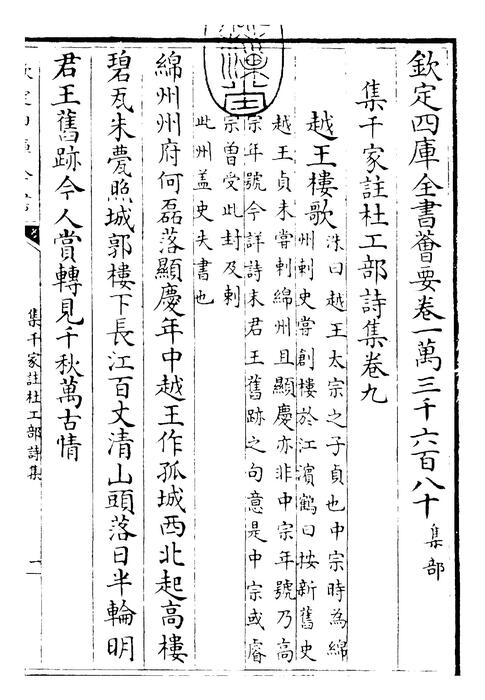 欽定四庫全書薈要卷一萬三千六百八十 集部
集千家註杜工部詩集卷九
越王樓歌
洙曰越王太宗之子貞也中宗時為綿
州刺史嘗創樓於江濱鶴曰按新舊史
越王貞未嘗刺綿州且顯慶亦非中宗年號乃高
宗年號今詳詩末君王舊跡之句意是中宗或睿
宗曾受此封及刺
此州盖史失書也
綿州州府何磊落顯慶年中越王作孤城西北起高樓
碧瓦朱甍照城郭樓下長江百丈清山頭落日半輪明
君王舊跡今人賞轉見千秋萬古情
集千家註杜工部詩集
一